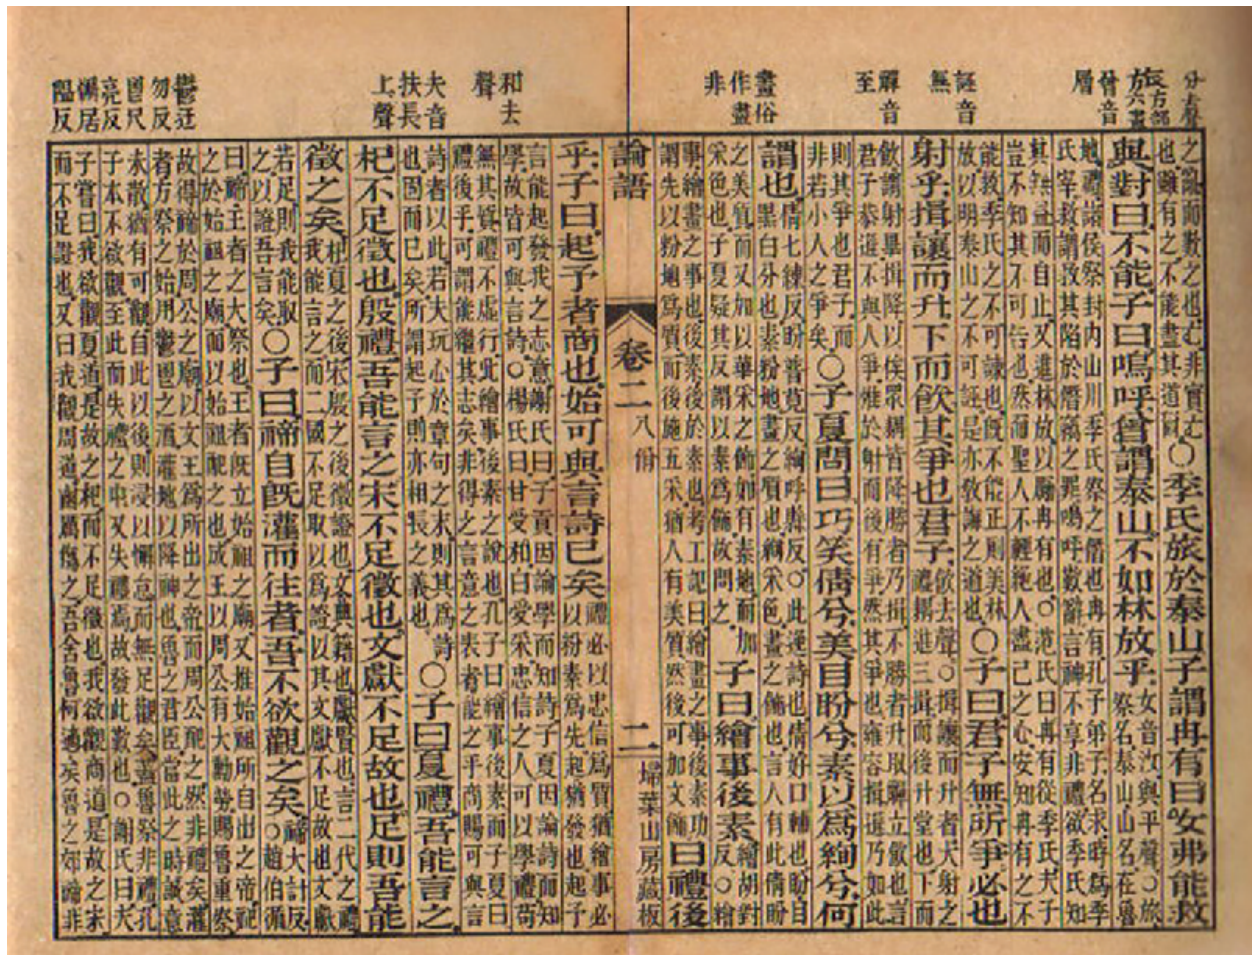 分去聲
旅方部
方六畫
曾音
層
誣音
無
觶音
至
畫俗
作畫
非
和去
聲
夫音
扶長
上聲
鬱迂
勿反
鬯尺
亮反
隘反
之論而歎之也亡非實亡
也雖有之不能盡其道爾
○季氏旅於泰山子謂冉有曰女弗能救
與對曰不能子曰嗚呼曾謂泰山不如林放乎
女音汝與平聲○旅
祭名泰山山名在魯
地禮諸侯祭封內山川季氏祭之僭也冉有孔子弟子名求時爲季
氏宰救謂救其陷於僭竊之罪嗚呼歎辭言神不享非禮欲季氏知
其無益而自止又進林放以勵冉有也○范氏曰冉有從季氏夫子
豈不知其不可告也然而聖人不輕絶人盡己之心安知冉有之不
能救季氏之不可諫也既不能正則美林
放以明泰山之不可誣是亦教誨之道也
○子曰君子無所爭必也
射乎揖讓而升下而飲其爭也君子
飲去聲○揖讓而升者大射之
禮耦進三揖而後升堂也下而
飲謂射畢揖降以俟眾耦皆降勝者乃揖不勝者升取觶立飲也言
君子恭遜不與人爭惟於射而後有爭然其爭也雍容揖遜乃如此
則其爭也君子而
非若小人之爭矣
○子夏問曰巧笑倩兮美目盼兮素以爲絢兮何
謂也
倩七練反盼普莧反絢呼縣反○此逸詩也倩好口輔也盼目
黑白分也素粉地畫之質也絢采色畫之飾也言人有此倩盼
之美質而又加以華采之飾如有素地而加
采色也子夏疑其反謂以素爲飾故問之
子曰繪事後素
繪胡對
反○繪
事繪畫之事也後素後於素也考工記曰繪畫之事後素功
謂先以粉地爲質而後施五采猶人有美質然後可加文飾
曰禮後
論語
卷二
八佾
二
埽葉山房藏板
乎子曰起予者商也始可與言詩已矣
禮必以忠信爲質猶繪事必
以粉素爲先起猶發也起予
言能起發我之志意謝氏曰子貢因論學而知詩子夏因論詩而知
學故皆可與言詩○楊氏曰甘受和白受采忠信之人可以學禮苟
無其質禮不虛行此繪事後素之說也孔子曰繪事後素而子夏曰
禮後乎可謂能繼其志矣非得之言意之表者能之乎商賜可與言
詩者以此若夫玩心於章句之末則其爲詩
也固而已矣所謂起予則亦相長之義也
○子曰夏禮吾能言之
杞不足徵也殷禮吾能言之宋不足徵也文獻不足故也足則吾能
徵之矣
杞夏之後宋殷之後徵證也文典籍也獻賢也言二代之禮
我能言之而二國不足取以爲證以其文獻不足故也文獻
若足則我能取
之以證吾言矣
○子曰禘自既灌而往者吾不欲觀之矣
禘大計反
○趙伯循
曰禘王者之大祭也王者既立始祖之廟又推始祖所自出之帝祀
之於始祖之廟而以始祖配之也成王以周公有大勳勞賜魯重祭
故得禘於周公之廟以文王爲所出之帝而周公配之然非禮矣灌
者方祭之始用鬱鬯之酒灌地以降神也魯之君臣當此之時誠意
未散猶有可觀自此以後則浸以懈怠而無足觀矣蓋魯祭非禮孔
子本不欲觀至此而失禮之中又失禮焉故發此歎也○謝氏曰夫
子嘗曰我欲觀夏道是故之杞而不足徵也我欲觀商道是故之宋
而不足證也又曰我觀周道幽厲傷之吾舍魯何適矣魯之郊禘非